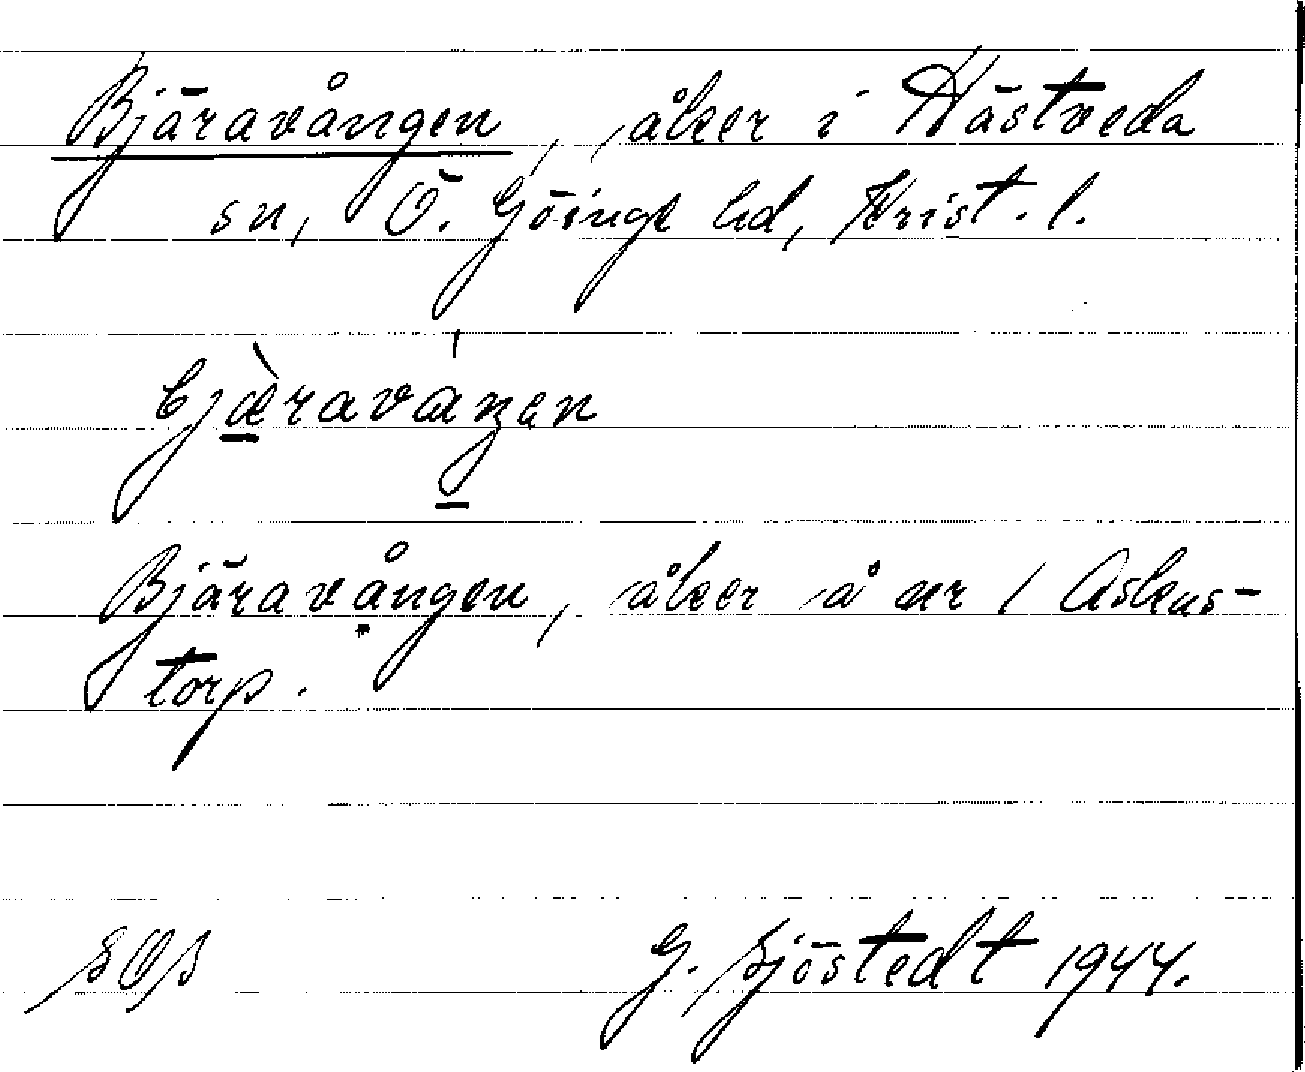 Bjäravången, åker i Hästveda
sn, Ö. Göinge hd, Krist. l.
bjæ̀raváŋen
Bjäravången, åker å nr 1 Askas-
torp.
SOS G. Sjöstedt 1944.